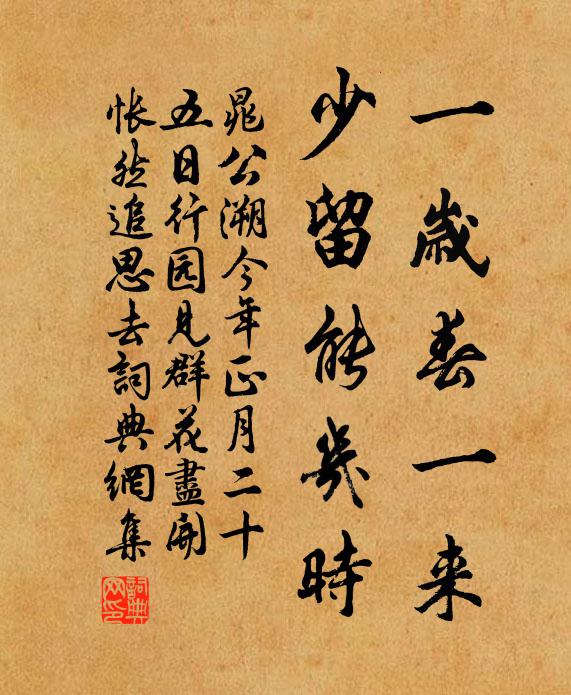 一歲春一来
少留能幾時
晁公溯今年正月二十
五日行园見群花盡開
悵然追思去詞典網集
詞典
网印